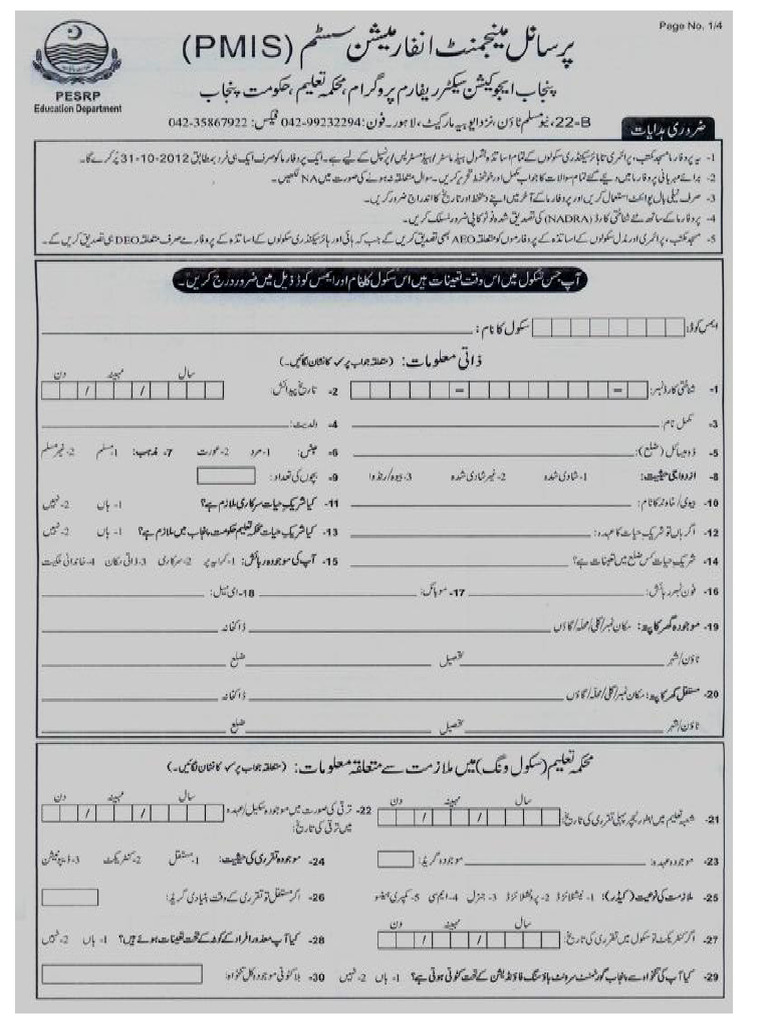 Page No. 1/4
پرسانل مینجمنٹ انفارمیشن سسٹم (PMIS)
پنجاب ایجوکیشن سیکٹر ریفارم پروگرام، محکمہ تعلیم، حکومت پنجاب
PESRP
Education Department
22-B، نیو مسلم ٹاؤن، نزد ایوبیہ مارکیٹ، لاہور۔ فون: 042-99232294 فیکس: 042-35867922
ضروری ہدایات
1- یہ پروفارما مسجد مکتب، پرائمری تا ہائر سیکنڈری سکولوں کے تمام اساتذہ بشمول ہیڈ ماسٹر/ہیڈ مسٹریس/پرنسپل کے لیے ہے۔ ایک پروفارما کو صرف ایک ہی فرد بمطابق 31-10-2012 پُر کرے گا۔
2- برائے مہربانی پروفارما میں دیئے گئے تمام سوالات کا جواب مکمل اور خوشخط تحریر کریں۔ سوال متعلقہ نہ ہونے کی صورت میں NA لکھیں۔
3- صرف نیلی بال پوائنٹ استعمال کریں اور پروفارما کے آخر میں اپنے دستخط اور تاریخ کا اندراج ضرور کریں۔
4- پروفارما کے ساتھ نئے شناختی کارڈ (NADRA) کی تصدیق شدہ فوٹو کاپی ضرور منسلک کریں۔
5- مسجد مکتب، پرائمری اور مڈل سکولوں کے اساتذہ کے پروفارموں کو متعلقہ AEO بھی تصدیق کریں گے جب کہ ہائی اور ہائر سیکنڈری سکولوں کے اساتذہ کے پروفارمے صرف متعلقہ DEO ہی تصدیق کریں گے۔
آپ جس سکول میں اس وقت تعینات ہیں اس سکول کا نام اور ایمس کوڈ ذیل میں ضرور درج کریں۔
ایمس کوڈ: سکول کا نام:
ذاتی معلومات: (متعلقہ جواب پر ✓ کا نشان لگائیں۔)
سال مہینہ دن
1- شناختی کارڈ نمبر: 2- تاریخ پیدائش:
3- مکمل نام: 4- ولدیت:
5- ڈومیسائل (ضلع): 6- جنس: 1- مرد 2- عورت 7- مذہب: 1- مسلم 2- غیر مسلم
8- ازدواجی حیثیت: 1- شادی شدہ 2- غیر شادی شدہ 3- بیوہ/رنڈوا 9- بچوں کی تعداد:
10- بیوی/خاوند کا نام: 11- کیا شریک حیات سرکاری ملازم ہے؟ 1- ہاں 2- نہیں
12- اگر ہاں تو شریک حیات کا عہدہ: 13- کیا شریک حیات محکمہ تعلیم حکومت پنجاب میں ملازم ہے؟ 1- ہاں 2- نہیں
14- شریک حیات کس ضلع میں تعینات ہے؟ 15- آپ کی موجودہ رہائش: 1- کرایہ پر 2- سرکاری 3- ذاتی مکان 4- خاندانی ملکیت
16- فون نمبر رہائش: 17- موبائل: 18- ای میل:
19- موجودہ گھر کا پتہ: مکان نمبر/گلی/محلہ/گاؤں ڈاکخانہ
ٹاؤن/شہر تحصیل ضلع
20- مستقل گھر کا پتہ: مکان نمبر/گلی/محلہ/گاؤں ڈاکخانہ
ٹاؤن/شہر تحصیل ضلع
محکمہ تعلیم (سکول ونگ) میں ملازمت سے متعلقہ معلومات: (متعلقہ جواب پر ✓ کا نشان لگائیں۔)
سال مہینہ دن سال مہینہ دن
21- شعبہ تعلیم میں بطور ٹیچر پہلی تقرری کی تاریخ: 22- ترقی کی صورت میں موجودہ سکیل/عہدہ
میں ترقی کی تاریخ:
23- موجودہ عہدہ: موجودہ گریڈ: 24- موجودہ تقرری کی حیثیت: 1- مستقل 2- کنٹریکٹ 3- ڈیپوٹیشن
25- ملازمت کی نوعیت (کیڈر): 1- نیشنلائزڈ 2- پرونشلائزڈ 3- جنرل 4- ایم سی 5- کمپری ہینسو 26- اگر مستقل تو تقرری کے وقت بنیادی گریڈ:
سال مہینہ دن
27- اگر کنٹریکٹ تو سکول میں تقرری کی تاریخ: 28- کیا آپ معذور افراد کے کوٹہ کے تحت تعینات ہوئے ہیں؟ 1- ہاں 2- نہیں
29- کیا آپ کی تنخواہ سے پنجاب گورنمنٹ سرونٹ ہاؤسنگ فاؤنڈیشن کے تحت کٹوتی ہوتی ہے؟ 1- ہاں 2- نہیں 30- بلا کٹوتی موجودہ کل تنخواہ: